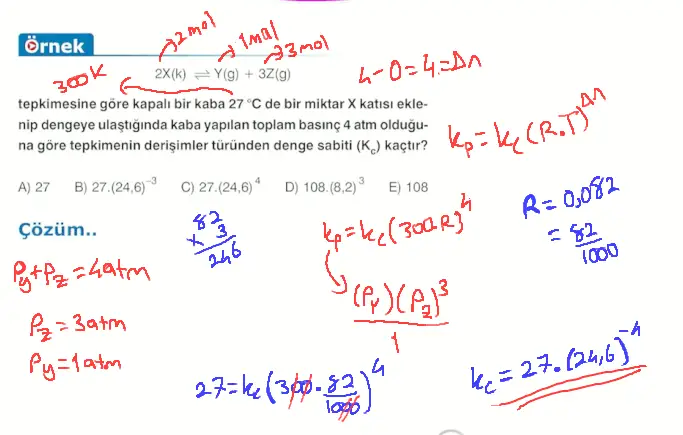 2mol
1mol
3mol
Örnek
300K
2X(k) ⇌ Y(g) + 3Z(g)
4-0=4=Δn
tepkimesine göre kapalı bir kaba 27 °C de bir miktar X katısı ekle-
nip dengeye ulaştığında kaba yapılan toplam basınç 4 atm olduğu-
na göre tepkimenin derişimler türünden denge sabiti (Kc) kaçtır?
kp=kc(R.T)^Δn
A) 27 B) 27.(24,6)⁻³ C) 27.(24,6)⁴ D) 108.(8,2)³ E) 108
Çözüm..
82
x 3
246
kp=kc(300.R)⁴
R=0,082
=82/1000
Py+Pz=4atm
(Py)(Pz)³
1
Pz=3atm
Py=1atm
27=kc(300.82/1000)⁴
kc=27.(24,6)⁻⁴